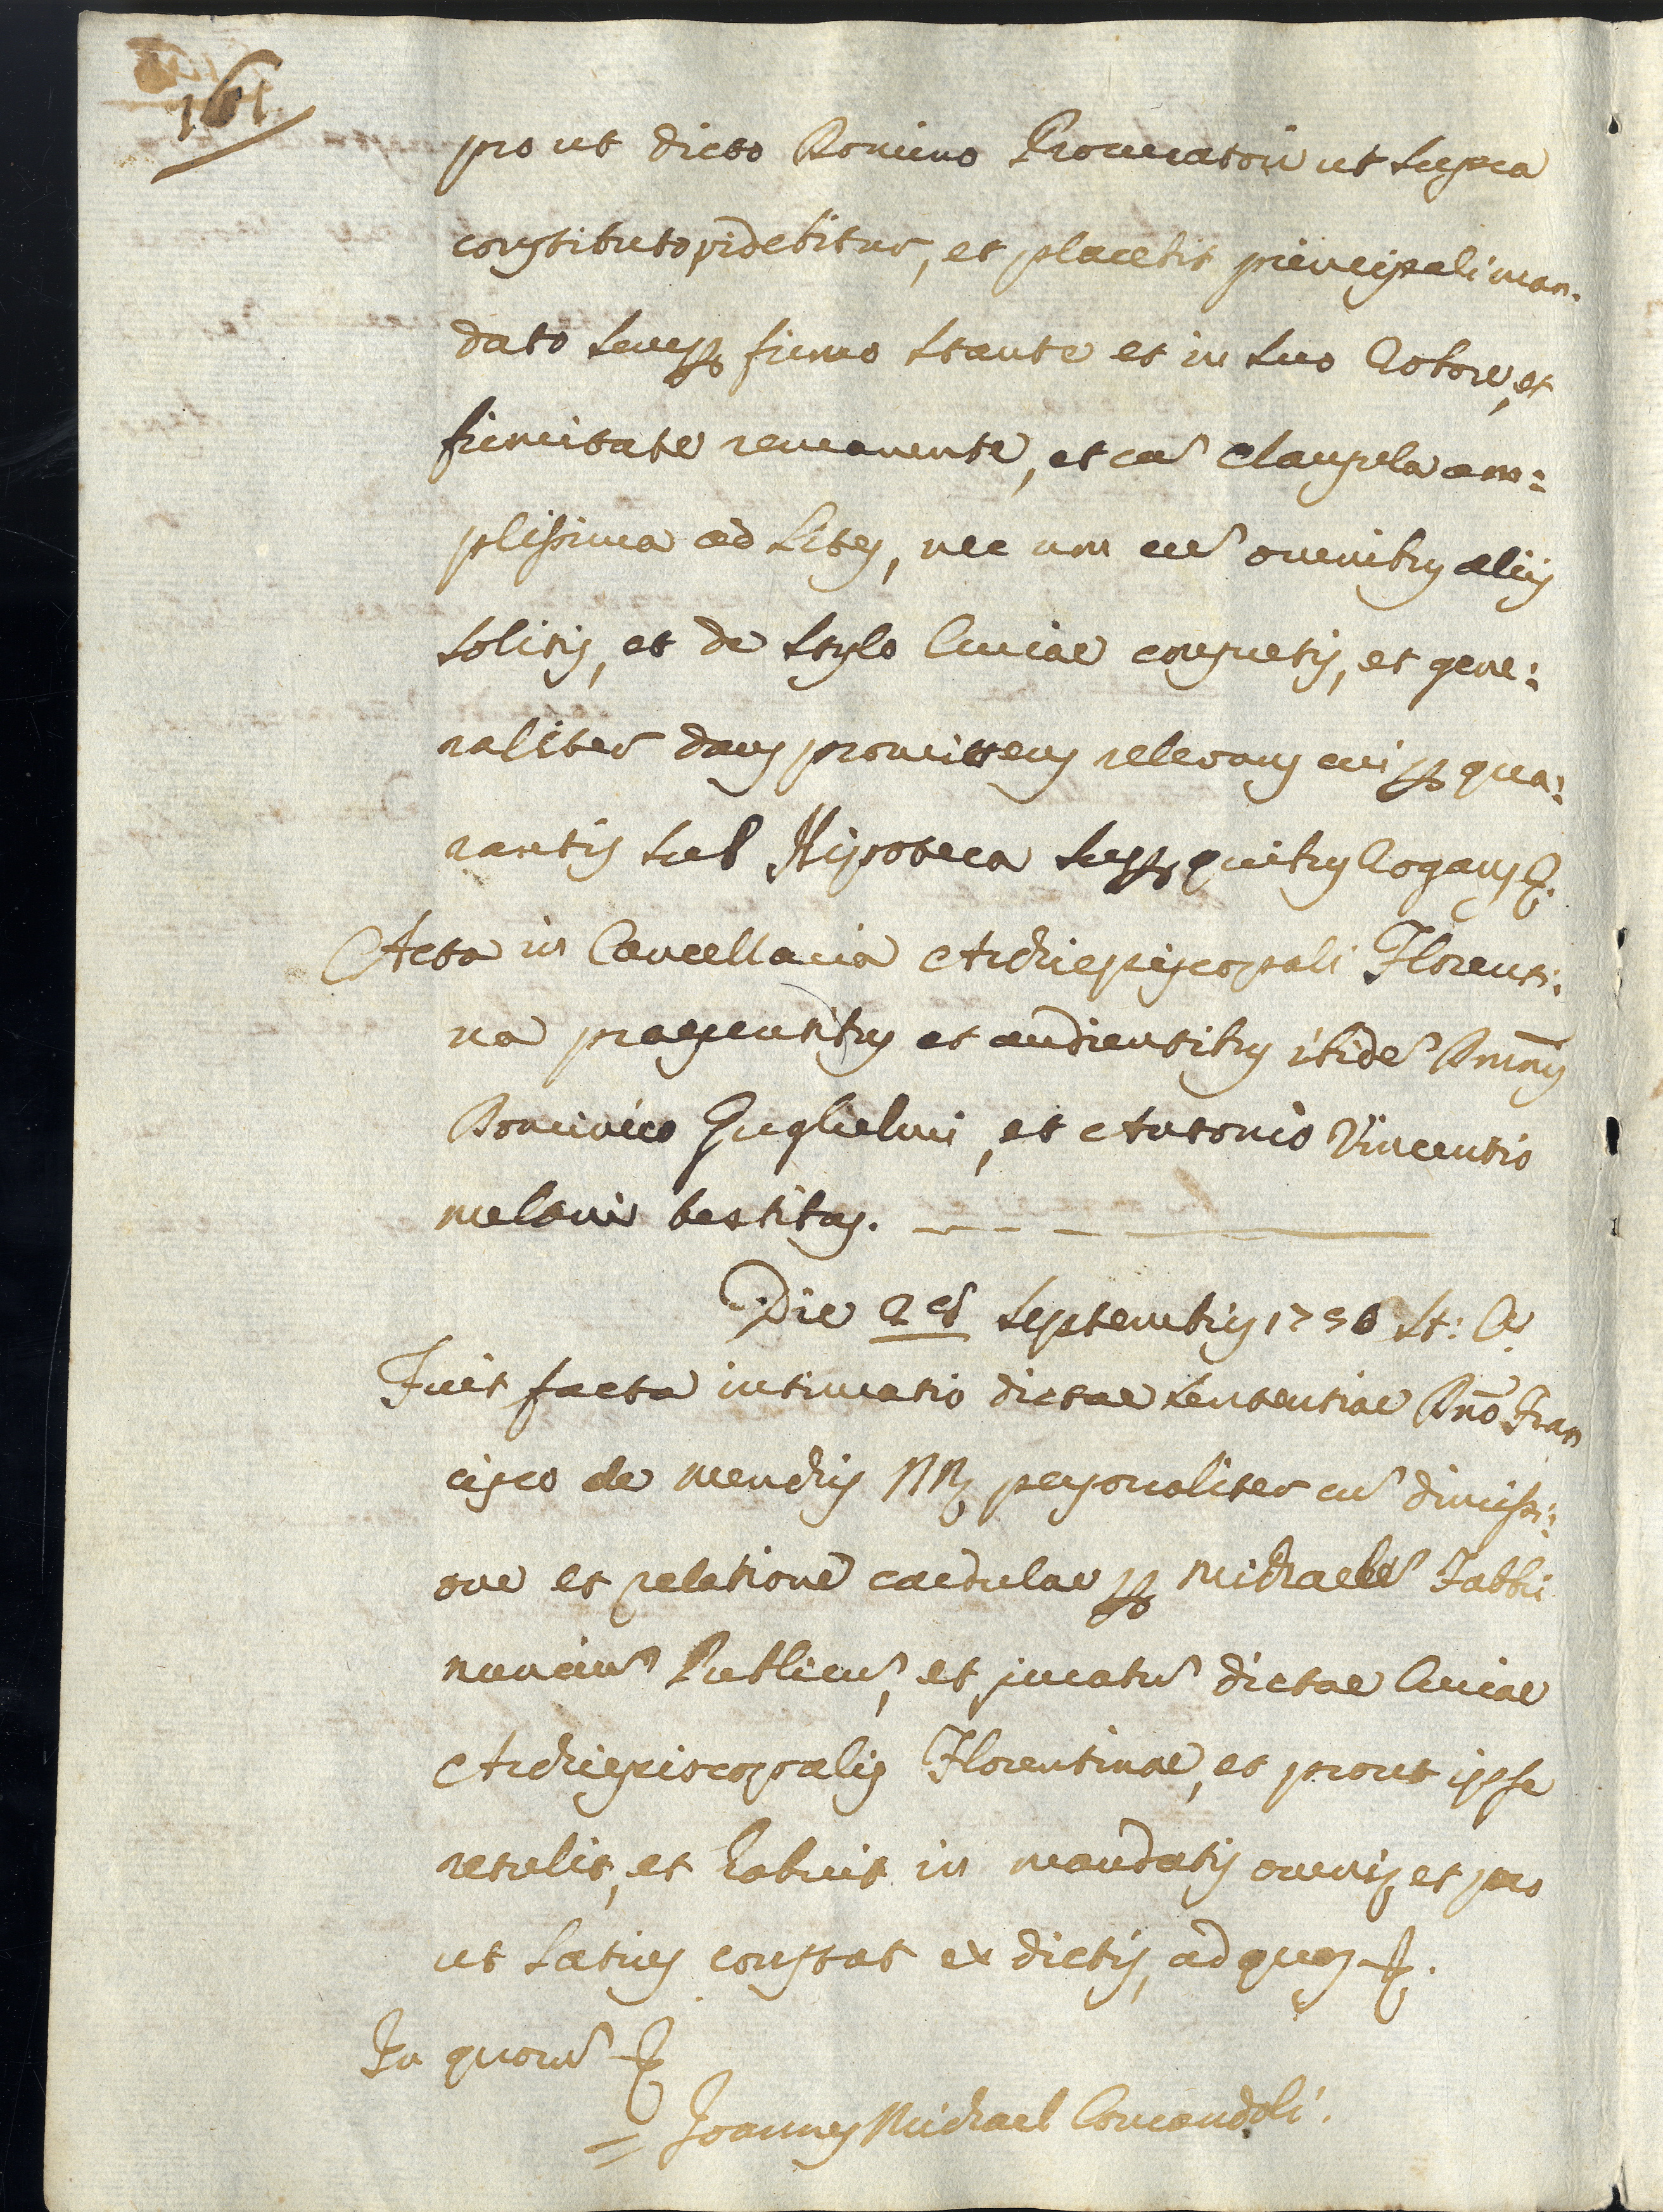 161
pro ut dicto Domino Procuratori ut supra
constituto videbitur, et placebit principali man-
dato semp firmo stante et in suo Robore, et
firmitate remanente, et cu clausula am:
plissima ad Lites, nec non cu omnibus aliis
solitis, et de stylo Curiae consuetis, et gene:
raliter dans promittens relevans cui p qua:
rantis sub Hipoteca supp quibus Rogans &.
Acta in Cancellaria Archiepiscopali Florenti:
na praesentibus et audientibus ibide Dmnis
Dominico Guglielmi, et Antonio Vincentio
melani testibus.
Die 28 Septembris 1756 St: C.
Fuit facta intimatio dictae sententiae Dno Fran
cisco de mendis NN personaliter cu dimissi:
one et relatione caedulae p Michaele Fabbri
nunciu Publicu, et juratu dictae Curiae
Archiepiscopalis Florentinae, et prout ipse
retulit, et habuit in mandatis omnis, et pro
ut latius constat ex dictis, ad quos &.
In quoru &
= Joannes Michael